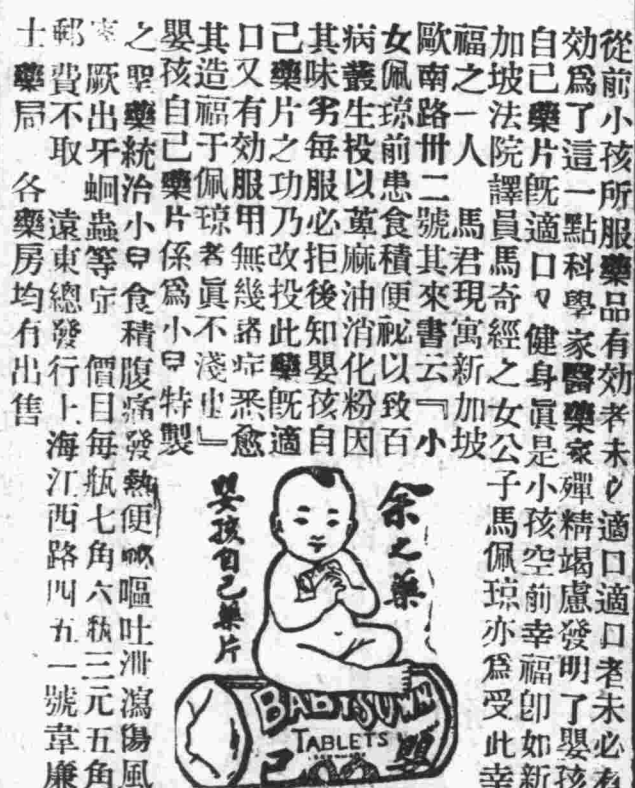 從前小孩所服藥品有効者未必適口適口者未必有
効爲了這一點科學家醫藥家殫精竭慮發明了嬰孩
自己藥片旣適口又健身眞是小孩空前幸福卽如新
加坡法院譯員馬奇經之女公子馬佩琼亦爲受此幸
福之一人 馬君現寓新加坡
歐南路卅二號其來書云『小
女佩琼前患食積便祕以致百
病叢生投以萆麻油消化粉因
其味劣每服必拒後知嬰孩自
己藥片之功乃改投此藥旣適
口又有効服用無幾諸症悉愈
其造福于佩琼者眞不淺也』
嬰孩自己藥片係爲小兒特製
之聖藥統治小兒食積腹痛發熱便祕嘔吐泄瀉傷風
寒厥出牙蛔蟲等症 價目每瓶七角六瓶三元五角
郵費不取 遠東總發行上海江西路四五一號韋廉
士藥局 各藥房均有出售
余之藥
嬰孩自己藥片
BABY'S OWN
TABLETS
己